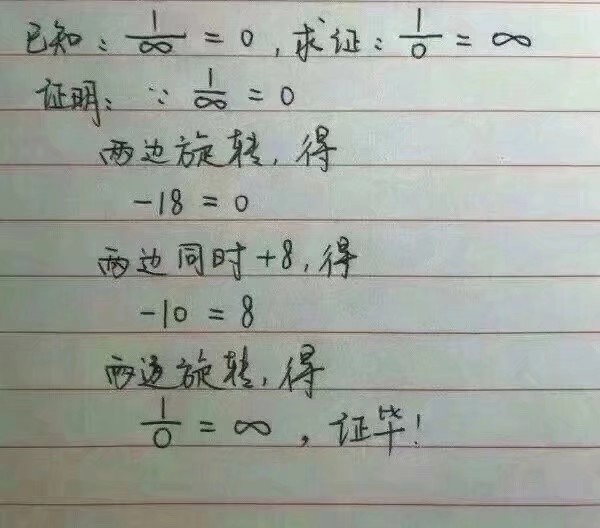 已知：1/∞ = 0，求证：1/0 = ∞
证明：∵ 1/∞ = 0
两边旋转，得
-18 = 0
两边同时+8，得
-10 = 8
两边旋转，得
1/0 = ∞，证毕！